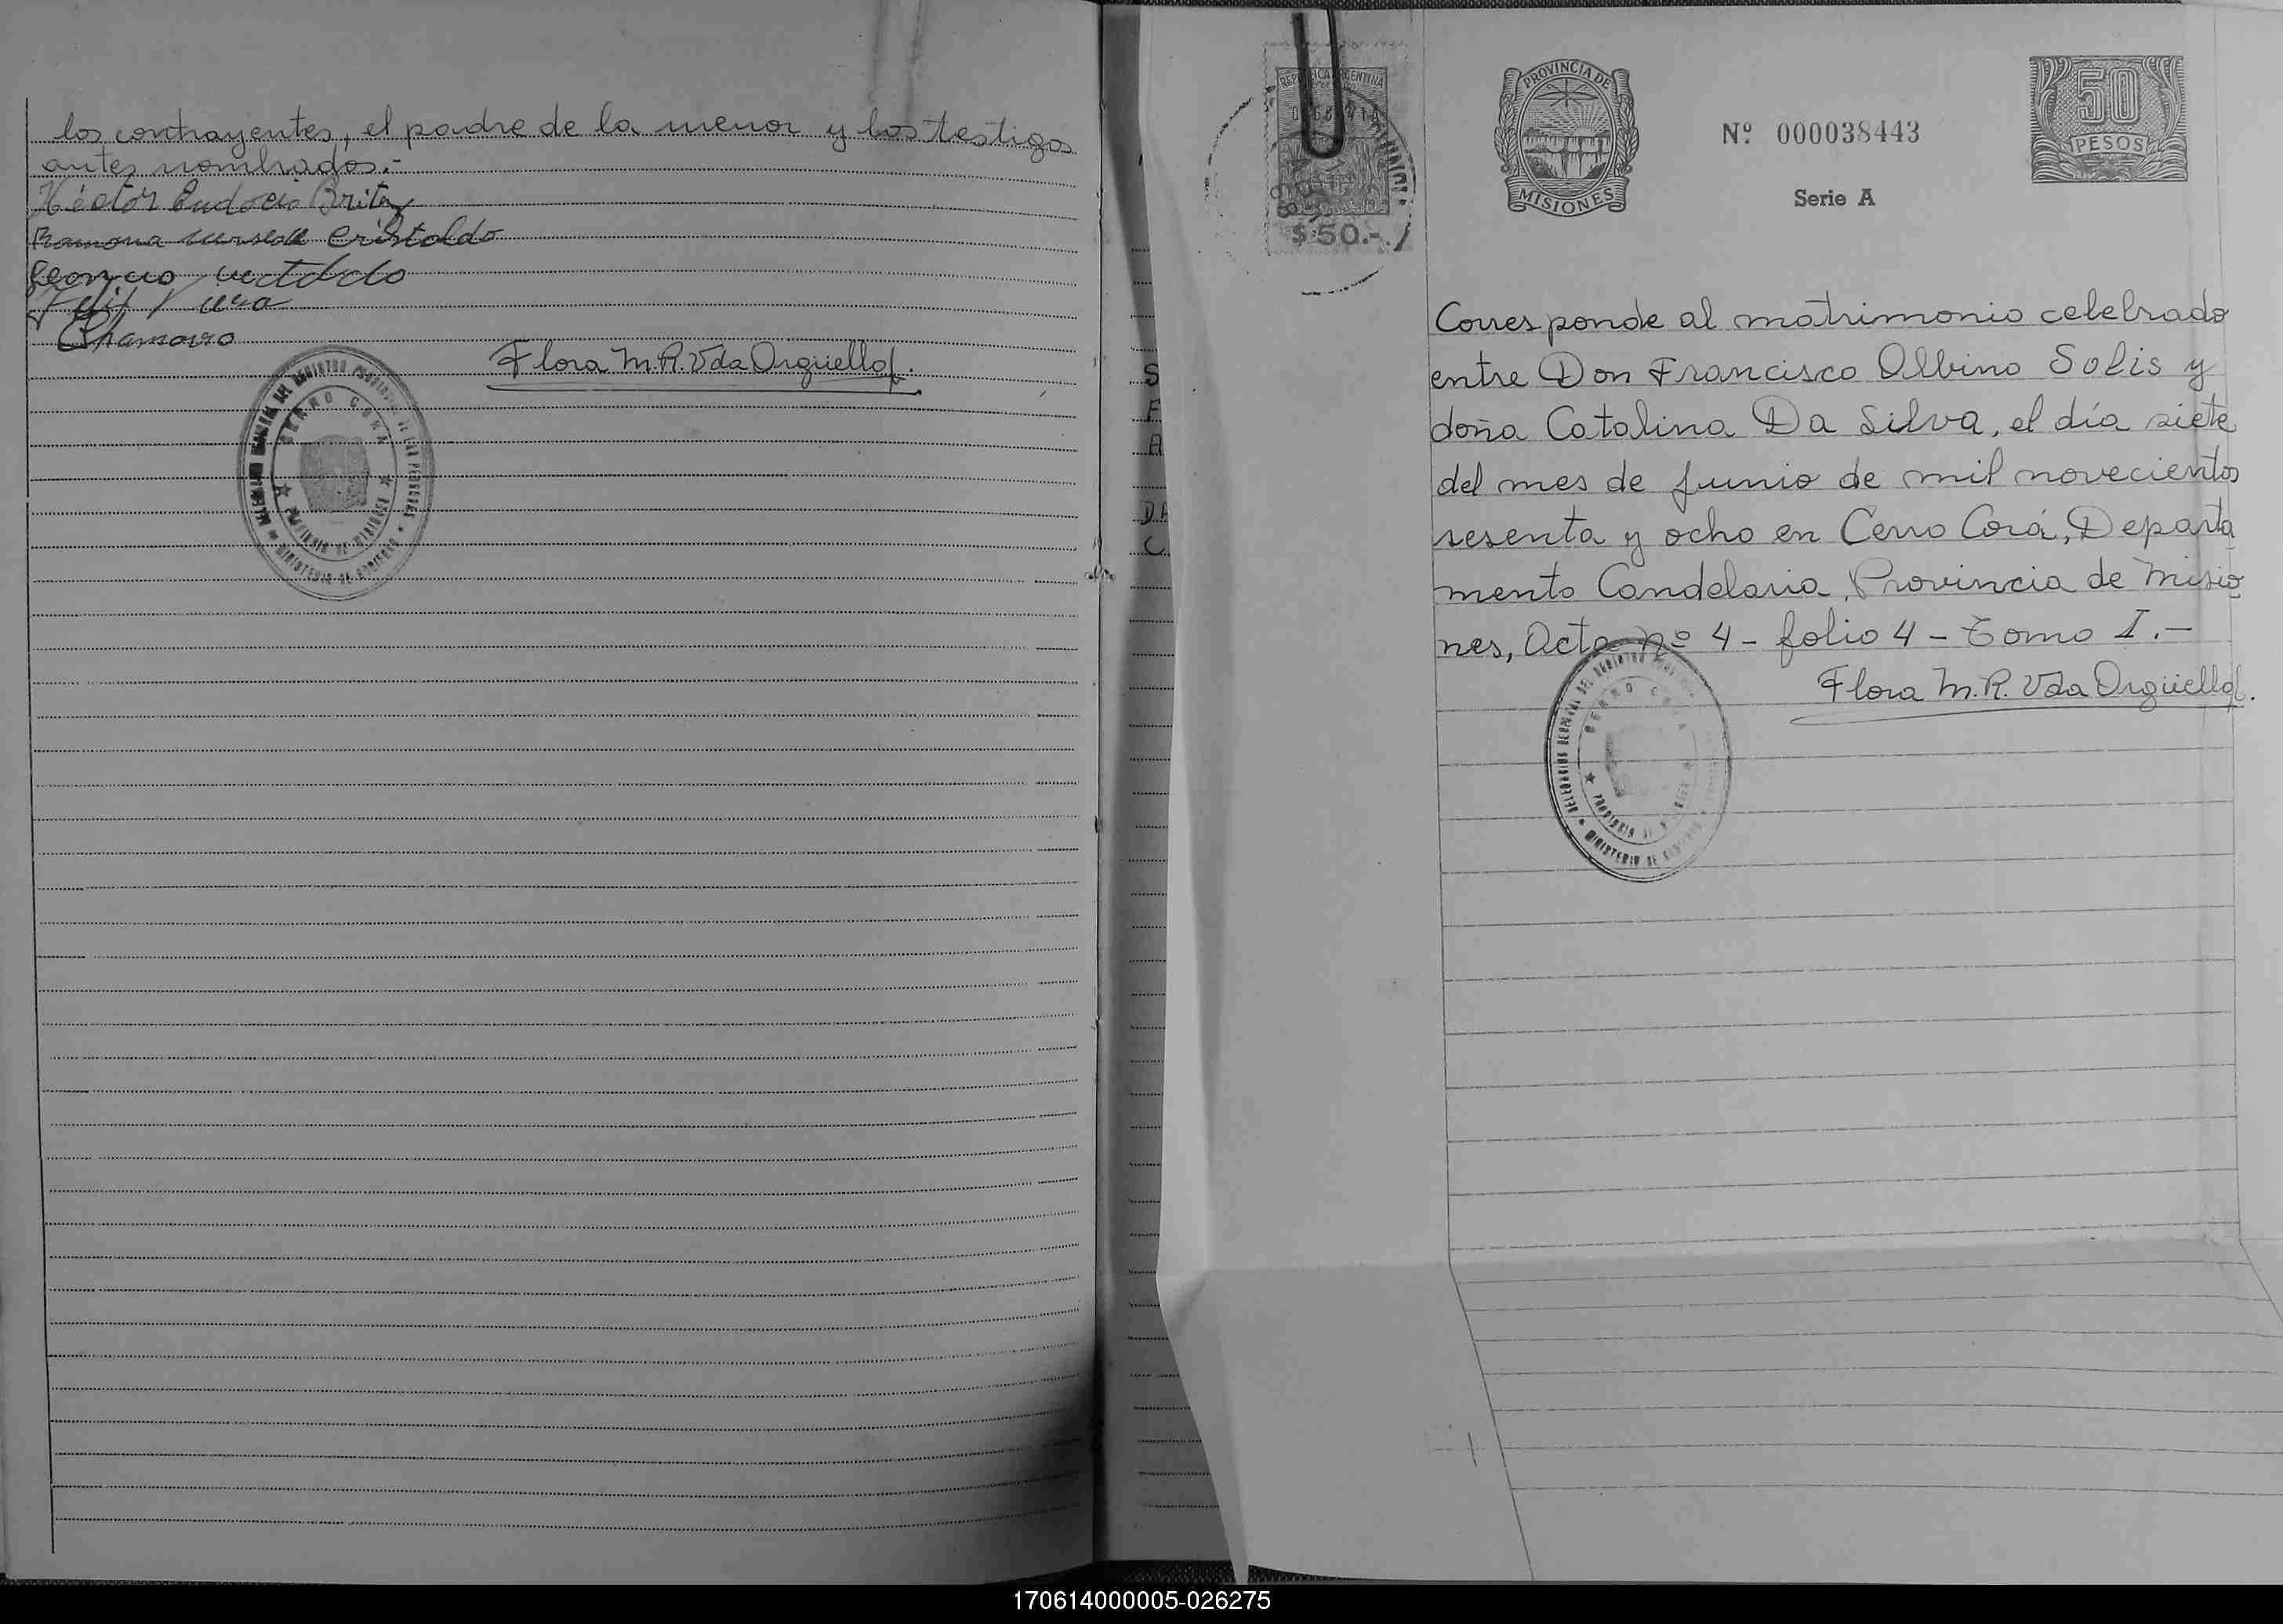 los contrayentes, el padre de la menor y los testigos
antes nombrados.-
Héctor Eudocio Britez
Ramona Cristaldo
Chamorro
Flora M.R. Vda Orgüello.
CERRO CORA
PROVINCIA DE MISIONES
MINISTERIO DE GOBIERNO
S
F
A
DA
C
REPUBLICA ARGENTINA
$ 50.-
PROVINCIA DE
MISIONES
Nº 000038443
Serie A
50
PESOS
Corresponde al matrimonio celebrado
entre Don Francisco Albino Solis y
doña Catalina Da Silva, el día siete
del mes de Junio de mil novecientos
sesenta y ocho en Cerro Corá, Departa
mento Candelaria, Provincia de Misio
nes, Acta nº 4 - folio 4 - Tomo I.-
Flora M.R. Vda Orgüello.
CERRO CORA
PROVINCIA DE MISIONES
MINISTERIO DE GOBIERNO
170614000005-026275